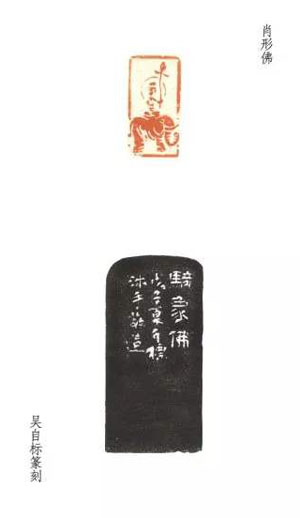 肖形佛
騎象佛
戊子夏自標
沐手敬造
吴自标篆刻